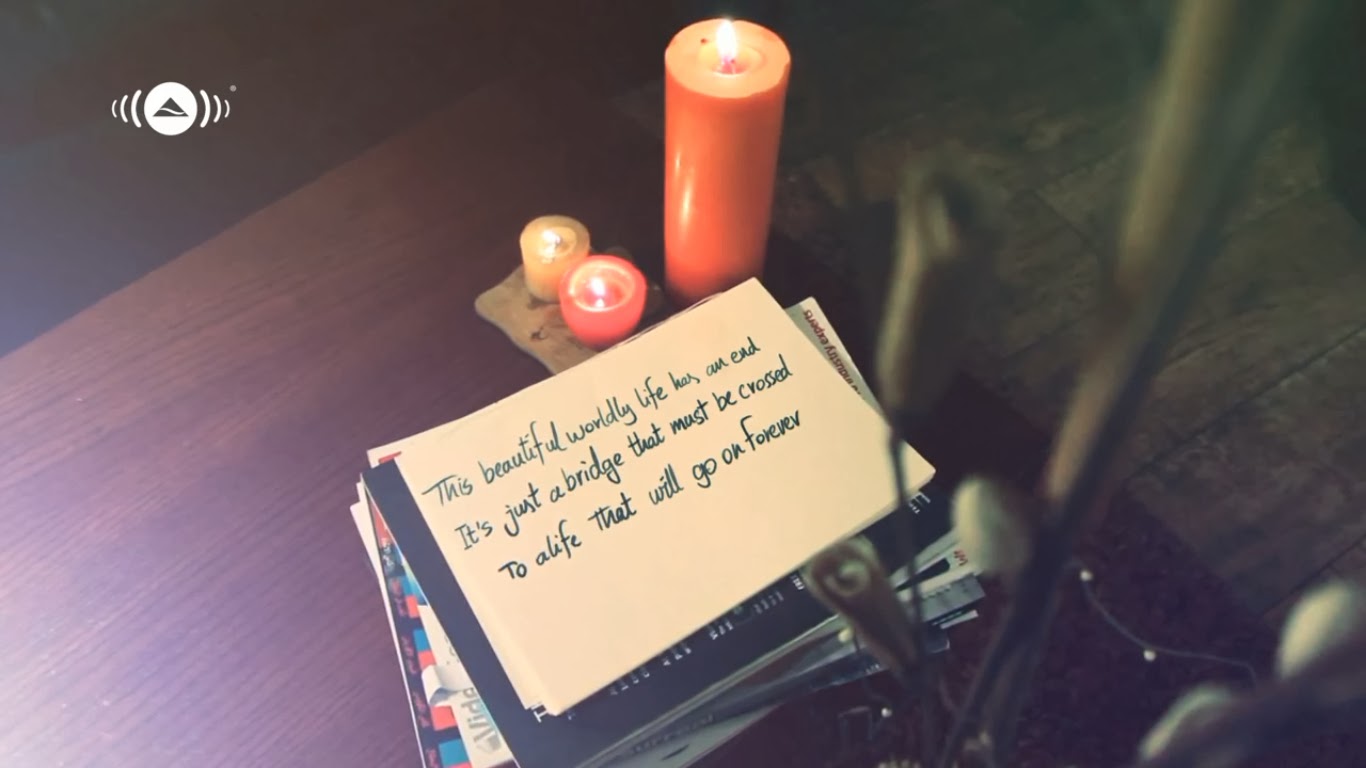 This beautiful worldly life has an end
It's just a bridge that must be crossed
To a life that will go on forever
industry experts